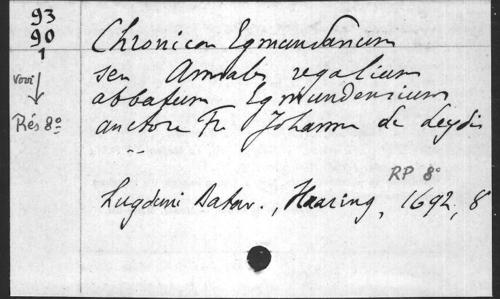 93
90
1
voir
Rés 8º
Chronicon Egmundanum
seu Annales regalium
abbatum Egmundensium
auctore Fr Johanne de Leydis
RP 8º
Lugduni Batav., Haaring, 1692, 8